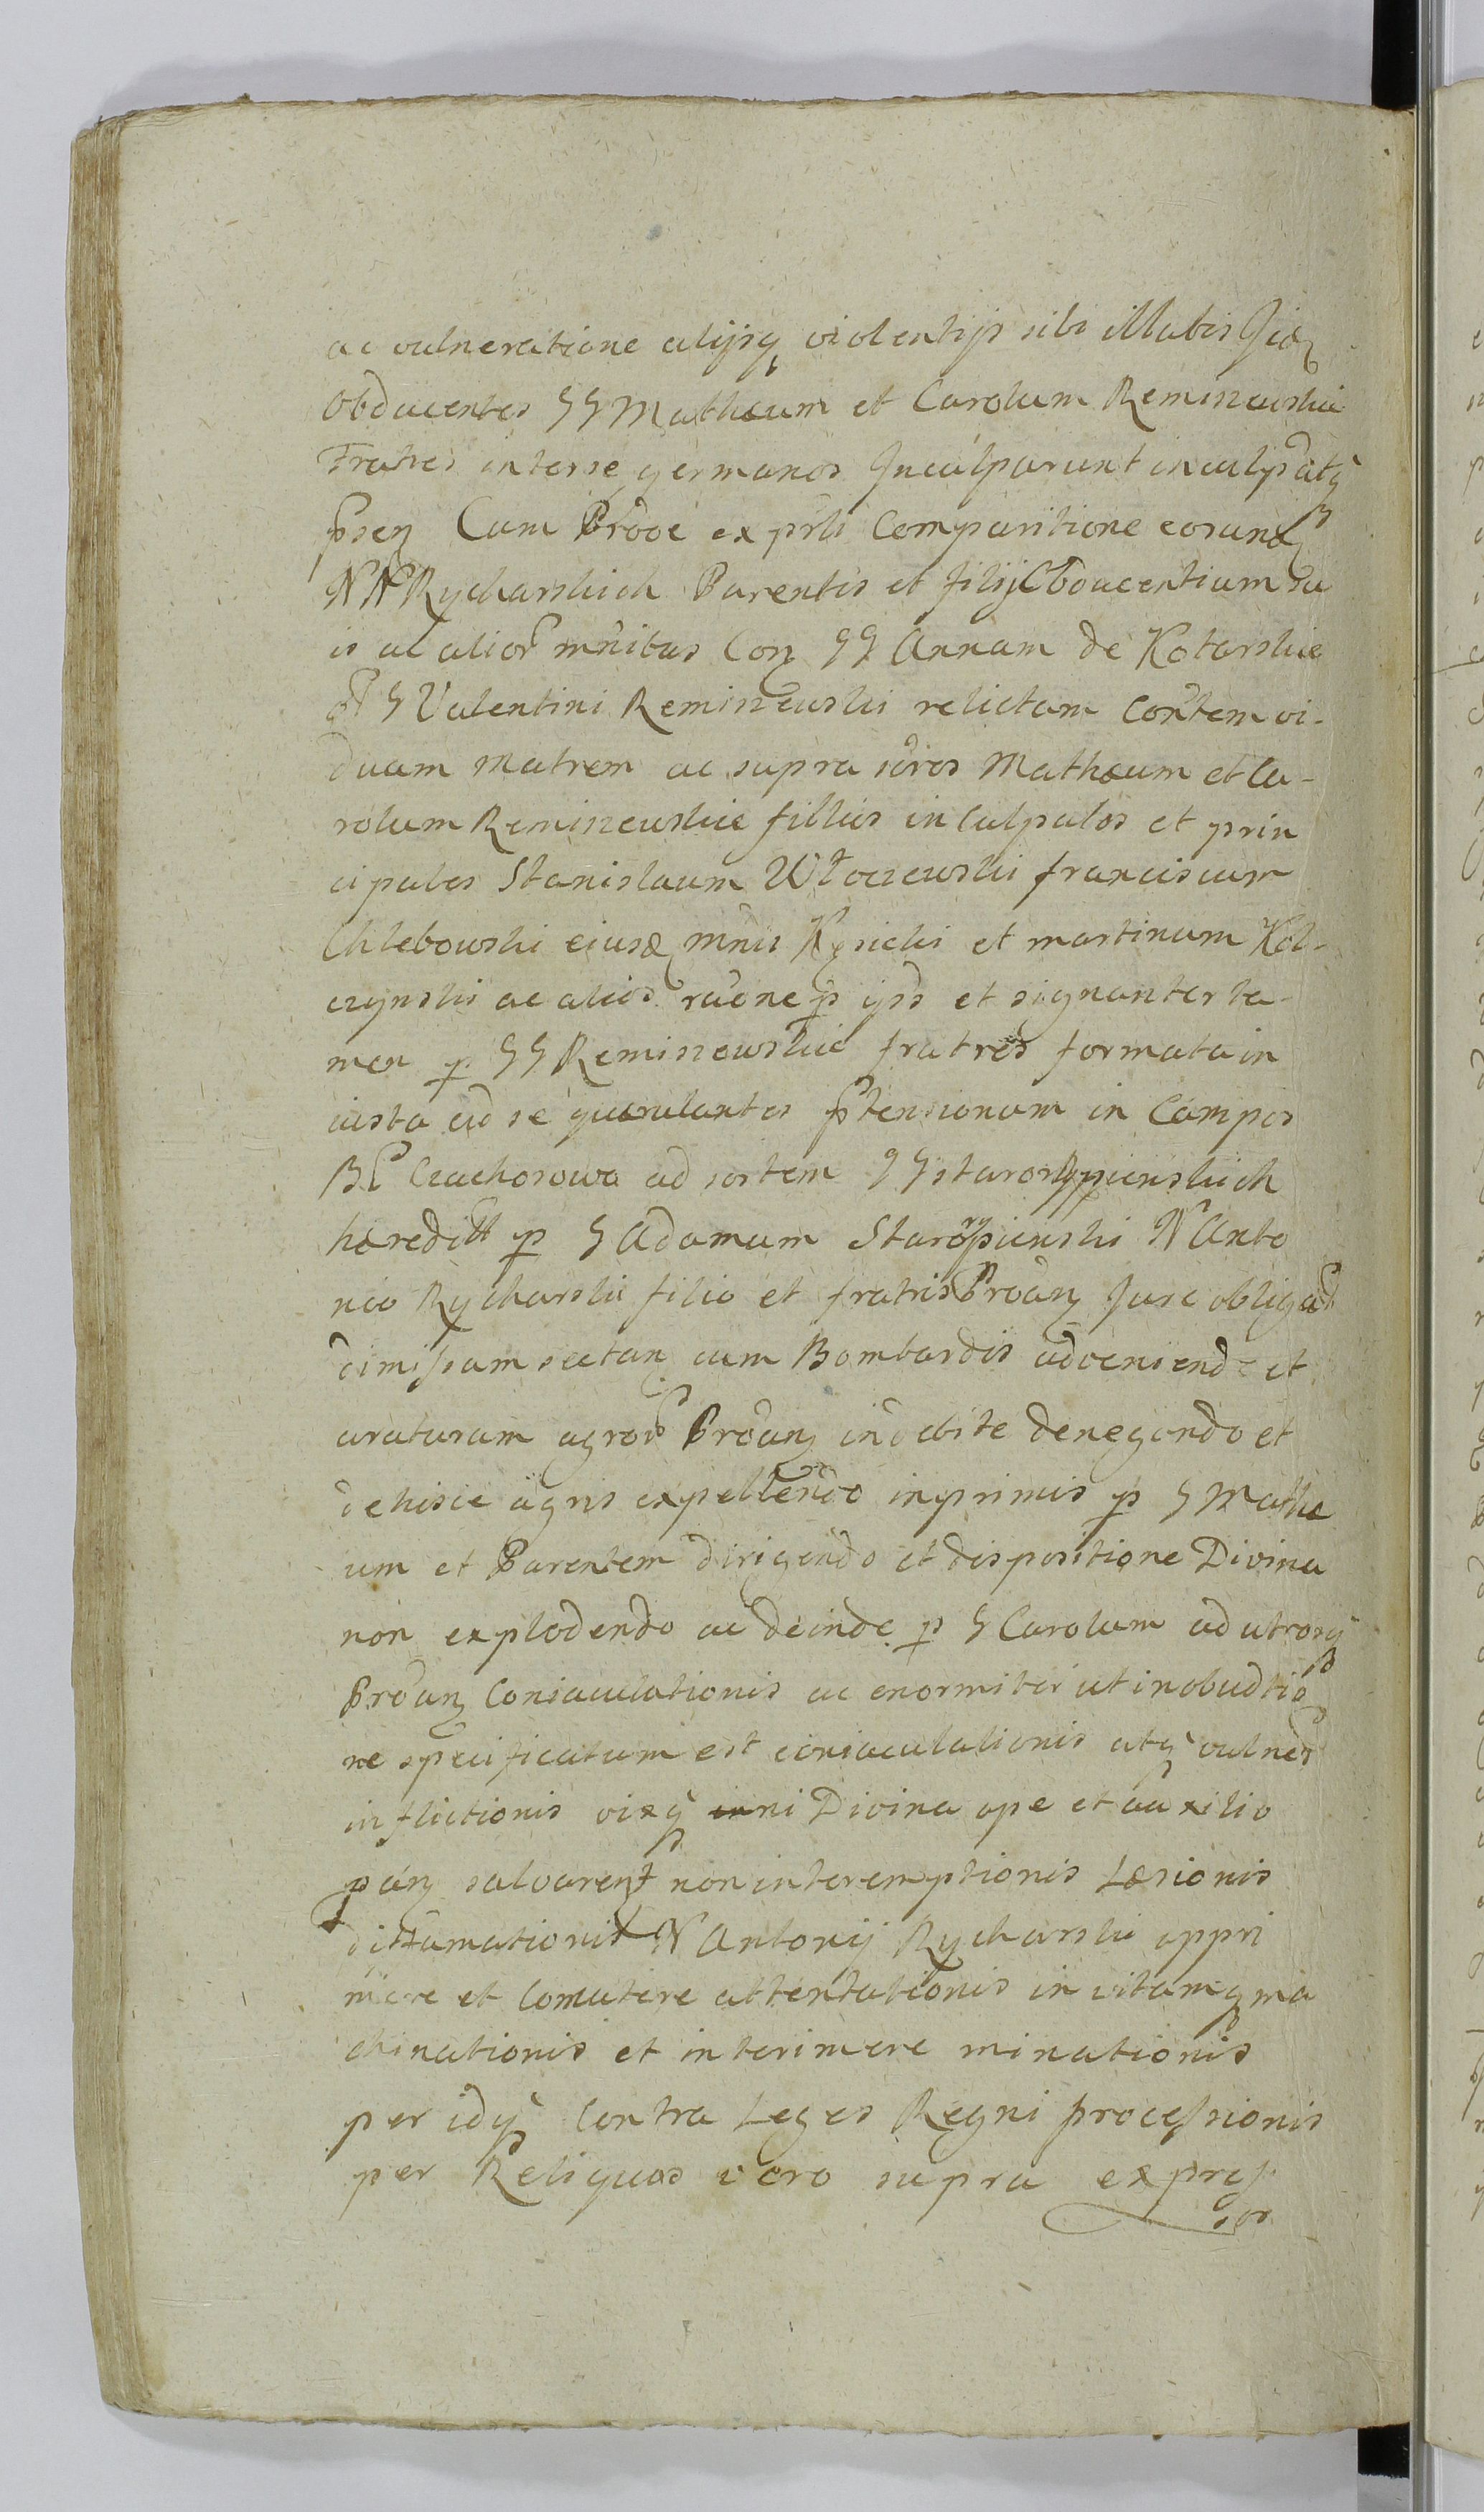 ac vulneratione alijsq violentijs sibi illatis
obducentes GG Mathæum et Carolum Remiszewskie
Fratres inter se germanos Inculparunt inculpatq
Cum Protõe ex pñti Comparitione eorund
NN Rycharskich Parentis et filij Obducentium su
is ac alior mñibus Con GG Annam de Kotarskie
G Valentini Remiszewski relictam Consortem vi-
duam Matrem ac supra scros Mathæum et Ca-
rolum Remiszewskie fillios inculpatos et prin
cipales Stanislaum Włoczewski franciscum
Chlebowski eiusd mñis Kęsicki et martinum Kol-
czynski ac alios raõne p ipsos et signanter ta-
men p GG Remiszewskie fratres formata in
iusta ad se querulantes pTensionum in Campos
B Czachorowo ad sortem GG staroRypienskich
hæredit p G Adamum Starorypienski N Anto
nio Rycharski filio et fratris Protan Jure obligat
dimissam sectan cum Bombardis adveniend et
araturam agror Protan indebite denegando et
de hisce agris expellendo inprimis p G Mathe
um et Parentem dirigendo et dispositione Divina
non explodendo ac deinde p G Carolum ad utrosq
Protan Coniaculationis ac enormiter ut in obductio
ne specificatum est coniaculationis atq vulner
inflictionis vixq ni Divina ope et auxilio
salvarent non interemptionis Læsionis
diffamationis N Antonij Rycharski oppri
mere et Comutere attentationis in vitamq ma
chinationis et interimere minationis
per idq Contra Leges Regni processionis
per Reliquos vero supra expres
sos